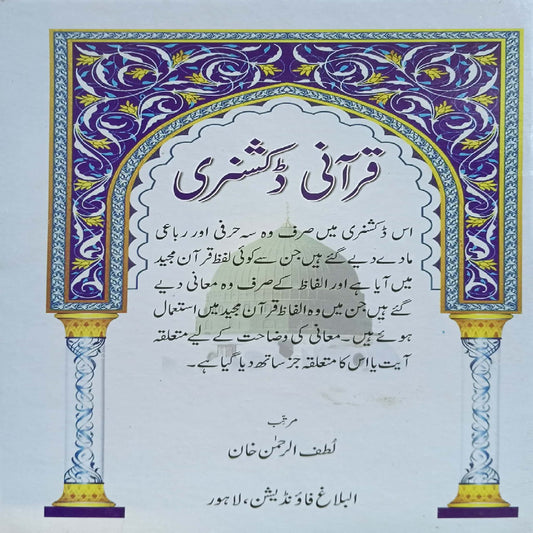 قرآنی ڈکشنری
اس ڈکشنری میں صرف وہ سہ حرفی اور رباعی
مادے دیے گئے ہیں جن سے کوئی لفظ قرآن مجید
میں آیا ہے اور الفاظ کے صرف وہ معانی دیے
گئے ہیں جن میں وہ الفاظ قرآن مجید میں استعمال
ہوئے ہیں۔ معانی کی وضاحت کے لیے متعلقہ
آیت یا اس کا متعلقہ جز ساتھ دیا گیا ہے۔
مرتب
لُطف الرحمٰن خان
البلاغ فاؤنڈیشن، لاہور